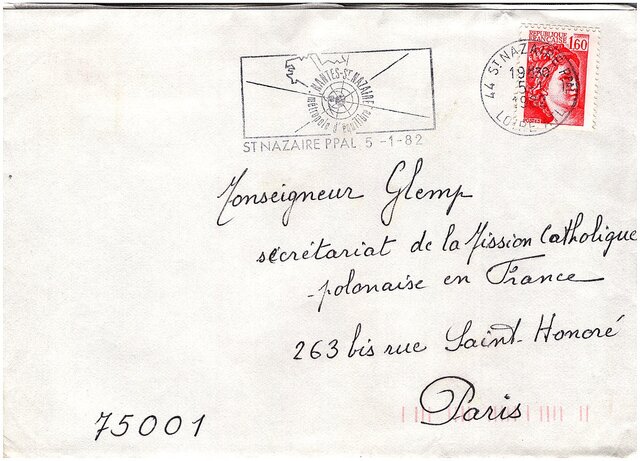 NANTES-ST NAZAIRE
métropole d'équilibre
ST NAZAIRE PPAL 5 -1-82
REPUBLIQUE
FRANCAISE
1,60
44 ST NAZAIRE PPAL
19H30
5-1
19
LOIRE ATL
Monseigneur Glemp
secrétariat de la Mission Catholique
polonaise en France
263 bis rue Saint-Honoré
Paris
75001